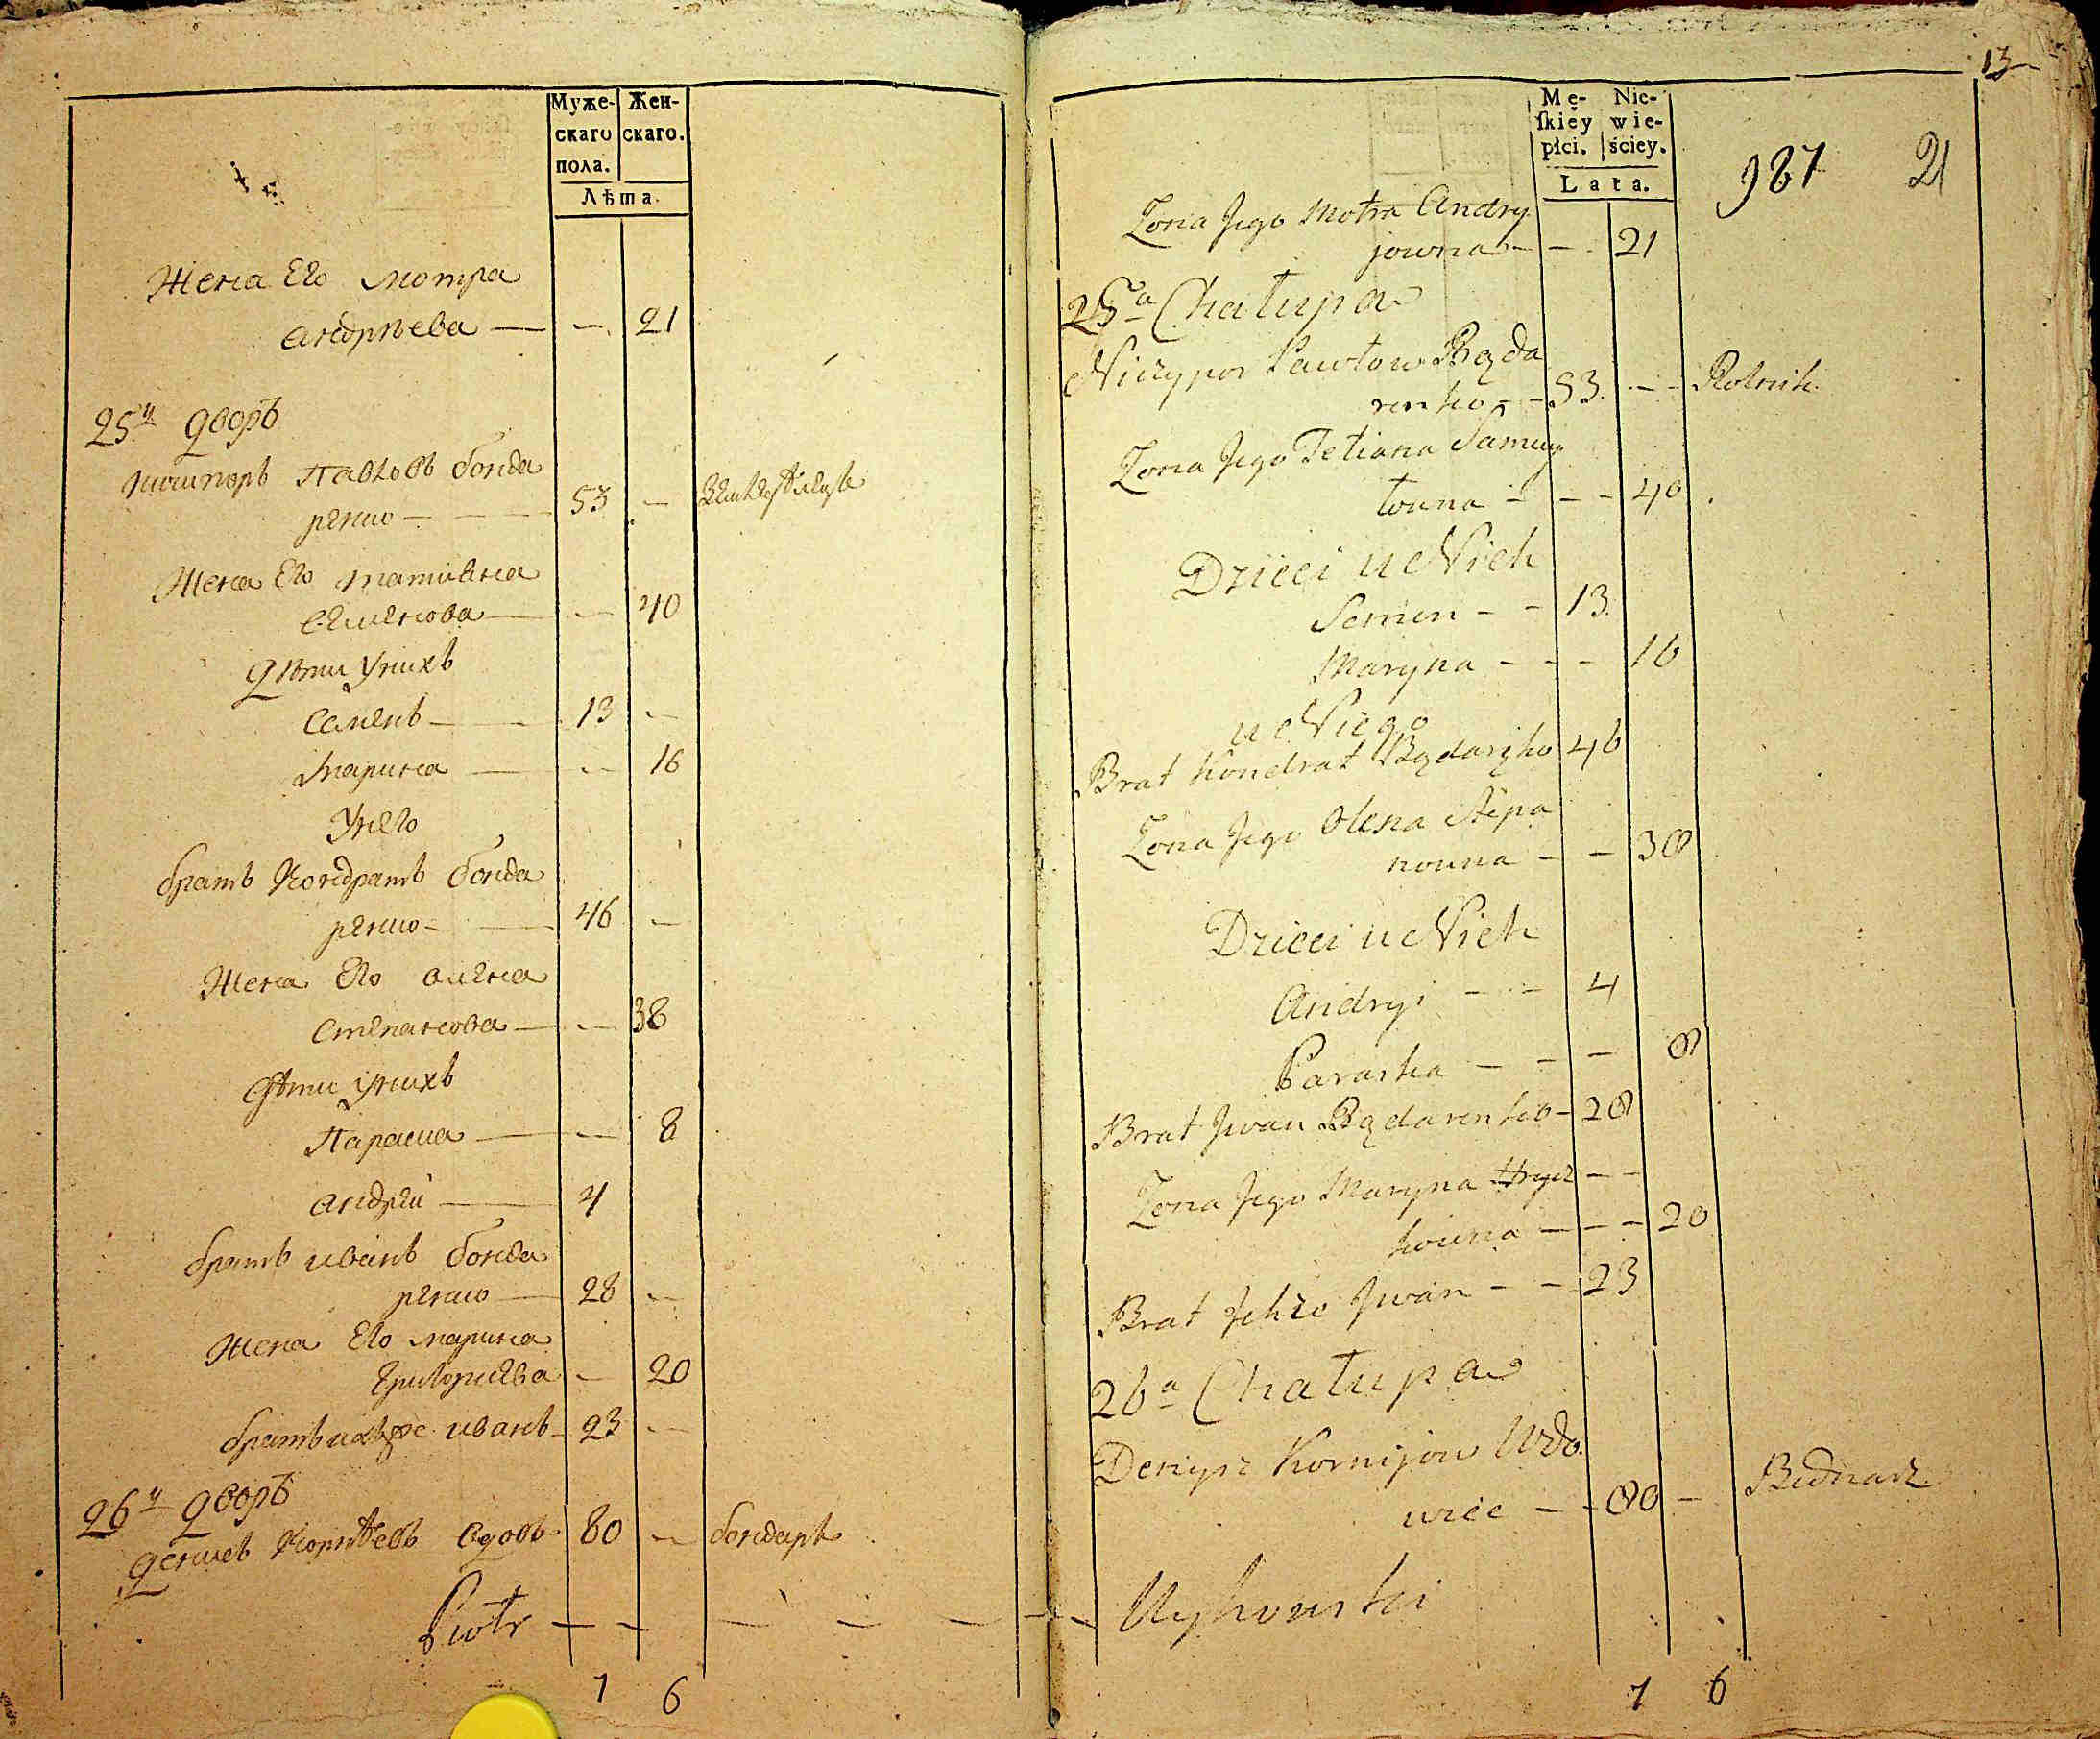 Муже-
скаго
пола.
Жен-
скаго.
Лѣта.
Жена Его мотра
андрѣева — — 21
25й дворъ
ничипоръ Павловъ бонда
ренко — 53 — Землед
Жена Его татиана
семенова — — 40
дѣти у нихъ
семенъ — 13 —
марина — — 16
У него
братъ Кондратъ бонда
ренко — 46 —
Жена Его олена
степанова — — 38
дѣти у нихъ
Параска — — 8
андрей — 4
братъ иванъ бонда
ренко — 28 —
Жена Его марина
григориева — 20
братъ ихъ же иванъ — 23 —
26й дворъ
денисъ Корнѣевъ вдовъ 80 — бондаръ
Piotr — — — — —
7 6
13
Mę-
ſkiéy
płci.
Nie-
wie-
ściey.
Lata.
987 21
Żona Jego Motra Andry
jowna — — 21
25a Chałupa
Niczypor Pawłow Bąda
renko — — 53. — — Rolnik
Żona Jego Tetiana Samuy
łowna — — — 40
Dzieci u Nich
Semen — — 13.
Maryna — — — 16
u Niego
Brat Kondrat Bądaręko 46
Żona Jego Olena Stepa
nowna — — 38
Dzieci u Nich
Andryi — — 4
Paraska — — — 8
Brat Jwan Bądarenko — 28
Żona Jego Maryna Hrycz — —
kowna — — — 20
Brat Jchże Jwan — — 23
26a Chałupa
Denysz Kornijow Wdo.
wiec — — 80 — Bednarz.
7 6